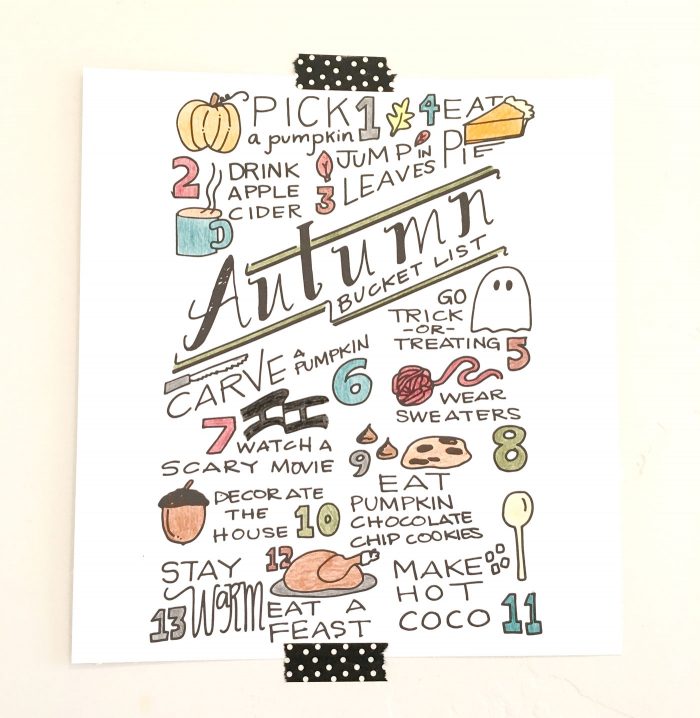 PICK 1
a pumpkin
2 DRINK
APPLE
CIDER
3 JUMP IN
LEAVES
4 EAT
PIE
Autumn
BUCKET LIST
GO
TRICK
-OR-
TREATING 5
CARVE A PUMPKIN
6
7 WATCH A
SCARY MOVIE
WEAR
SWEATERS
8
9 EAT
PUMPKIN
CHOCOLATE
CHIP COOKIES
DECORATE
THE
HOUSE 10
MAKE
HOT
COCO 11
12
EAT A
FEAST
STAY
13 WARM